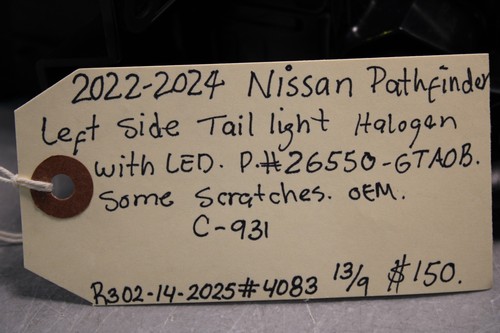 2022-2024 Nissan Pathfinder
Left Side Tail light Halogen
with LED. P.#26550-6TA0B.
Some Scratches. OEM.
C-931
R302-14-2025#4083 13/9 $150.